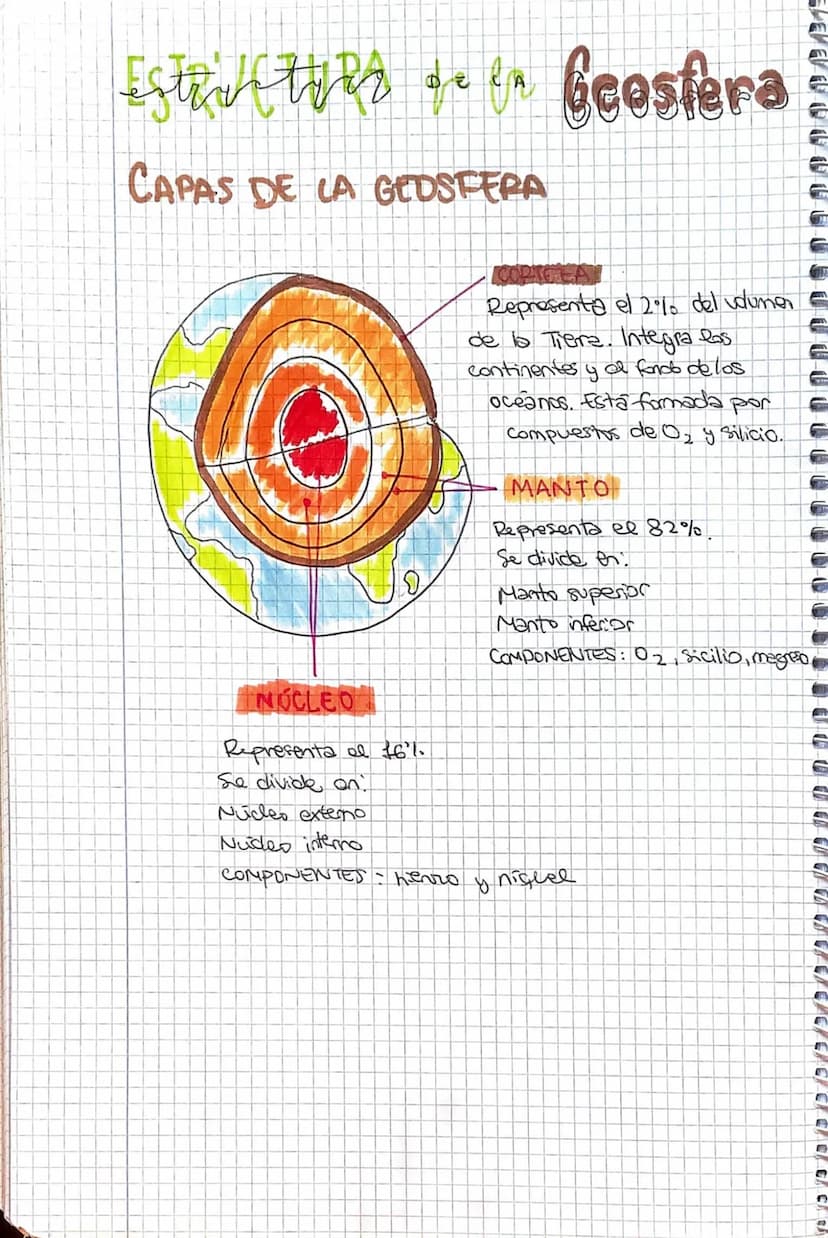 Estructura de la Geosfera
CAPAS DE LA GEOSFERA
CORTEZA
Representa el 2% del volumen
de la Tierra. Integra los
continentes y el fondo de los
océanos. Está formada por
compuestos de O2 y silicio.
MANTO
Representa el 82%.
Se divide en:
Manto superior
Manto inferior
COMPONENTES: O2, sicilio, magnesio
NÚCLEO
Representa el 16%
Se divide en:
Núcleo externo
Nucleo interno
COMPONENTES: hierro y níquel